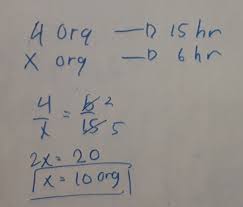 4 org —D 15 hr
x org —D 6 hr
4/x = 6 2/15 5
2x = 20
x = 10 org